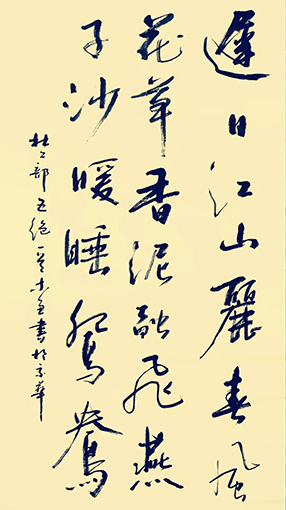 遲日江山麗春風
花草香泥融飛燕
子沙暖睡鴛鴦
杜工部五絕一首書於京華